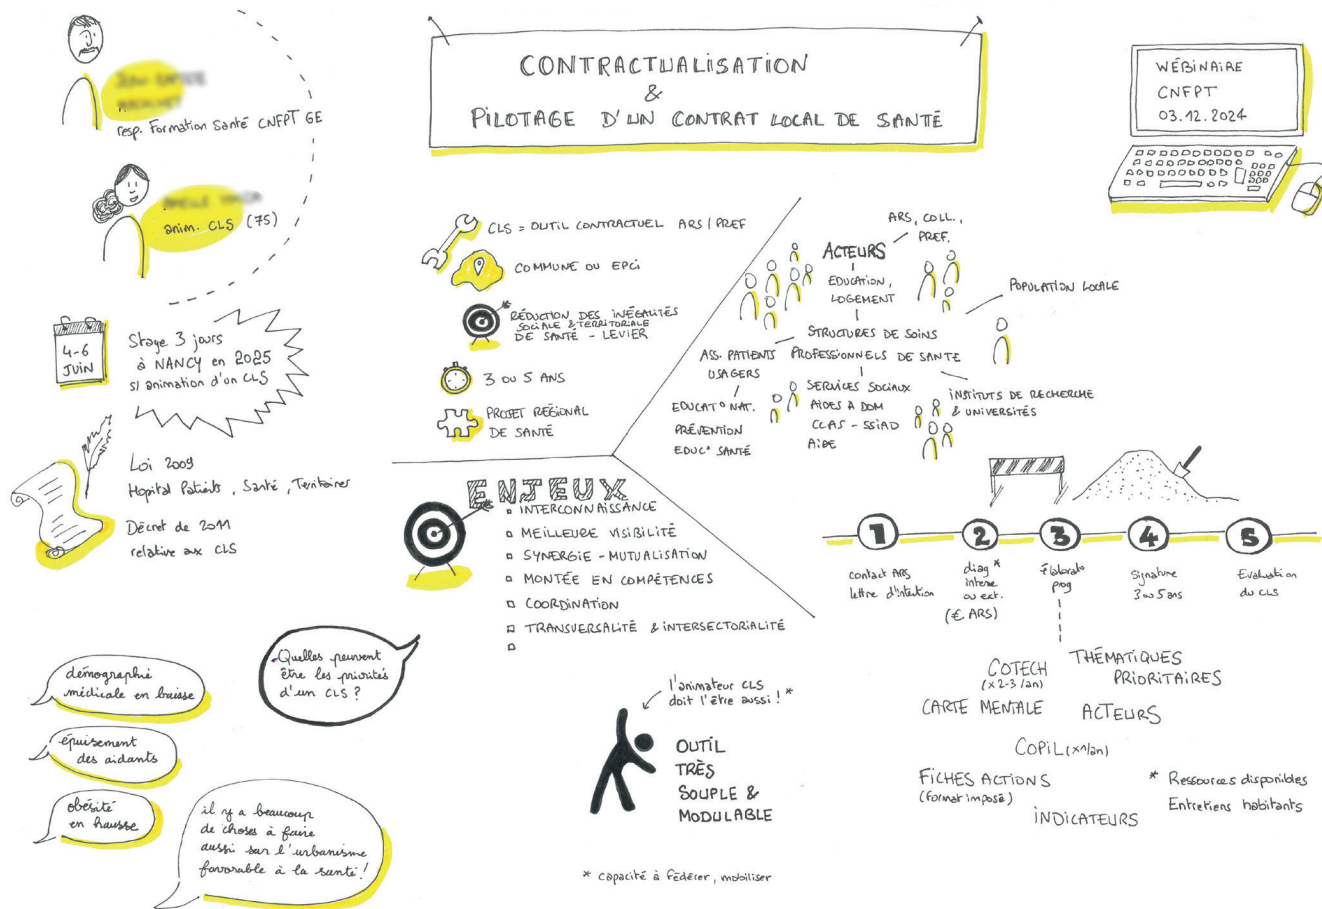 CONTRACTUALISATION
&
PILOTAGE D'UN CONTRAT LOCAL DE SANTÉ
WÉBINAIRE
CNFPT
03.12.2024
resp. Formation Santé CNFPT GE
anim. CLS (75)
4-6
JUIN
Stage 3 jours
à NANCY en 2025
s/ animation d'un CLS
Loi 2009
Hopital Patients, Santé, Territoires
Décret de 2011
relative aux CLS
CLS = OUTIL CONTRACTUEL ARS / PREF
COMMUNE OU EPCI
RÉDUCTION DES INÉGALITÉS
SOCIALE & TERRITORIALE
DE SANTÉ - LEVIER
3 OU 5 ANS
PROJET RÉGIONAL
DE SANTÉ
ACTEURS
ARS, COLL.,
PREF.
EDUCATION,
LOGEMENT
POPULATION LOCALE
STRUCTURES DE SOINS
PROFESSIONNELS DE SANTE
ASS. PATIENTS
USAGERS
EDUCAT° NAT.
PRÉVENTION
EDUC° SANTÉ
SERVICES SOCIAUX
AIDES A DOM
CCAS - SSIAD
AIDE
INSTITUTS DE RECHERCHE
& UNIVERSITÉS
ENJEUX
INTERCONNAISSANCE
MEILLEURE VISIBILITÉ
SYNERGIE - MUTUALISATION
MONTÉE EN COMPÉTENCES
COORDINATION
TRANSVERSALITÉ & INTERSECTORIALITÉ
1
contact ARS
lettre d'intention
2
diag *
interne
ou ext.
(€ ARS)
3
Élaborat°
prog
4
Signature
3 ou 5 ans
5
Evaluation
du CLS
COTECH
(x 2-3 /an)
THÉMATIQUES
PRIORITAIRES
CARTE MENTALE
ACTEURS
COPIL (x1/an)
FICHES ACTIONS
(format imposé)
INDICATEURS
* Ressources disponibles
Entretiens habitants
Quelles peuvent
être les priorités
d'un CLS ?
démographie
médicale en baisse
épuisement
des aidants
obésité
en hausse
il y a beaucoup
de choses à faire
aussi sur l'urbanisme
favorable à la santé !
l'animateur CLS
doit l'être aussi ! *
OUTIL
TRÈS
SOUPLE &
MODULABLE
* capacité à fédérer, mobiliser